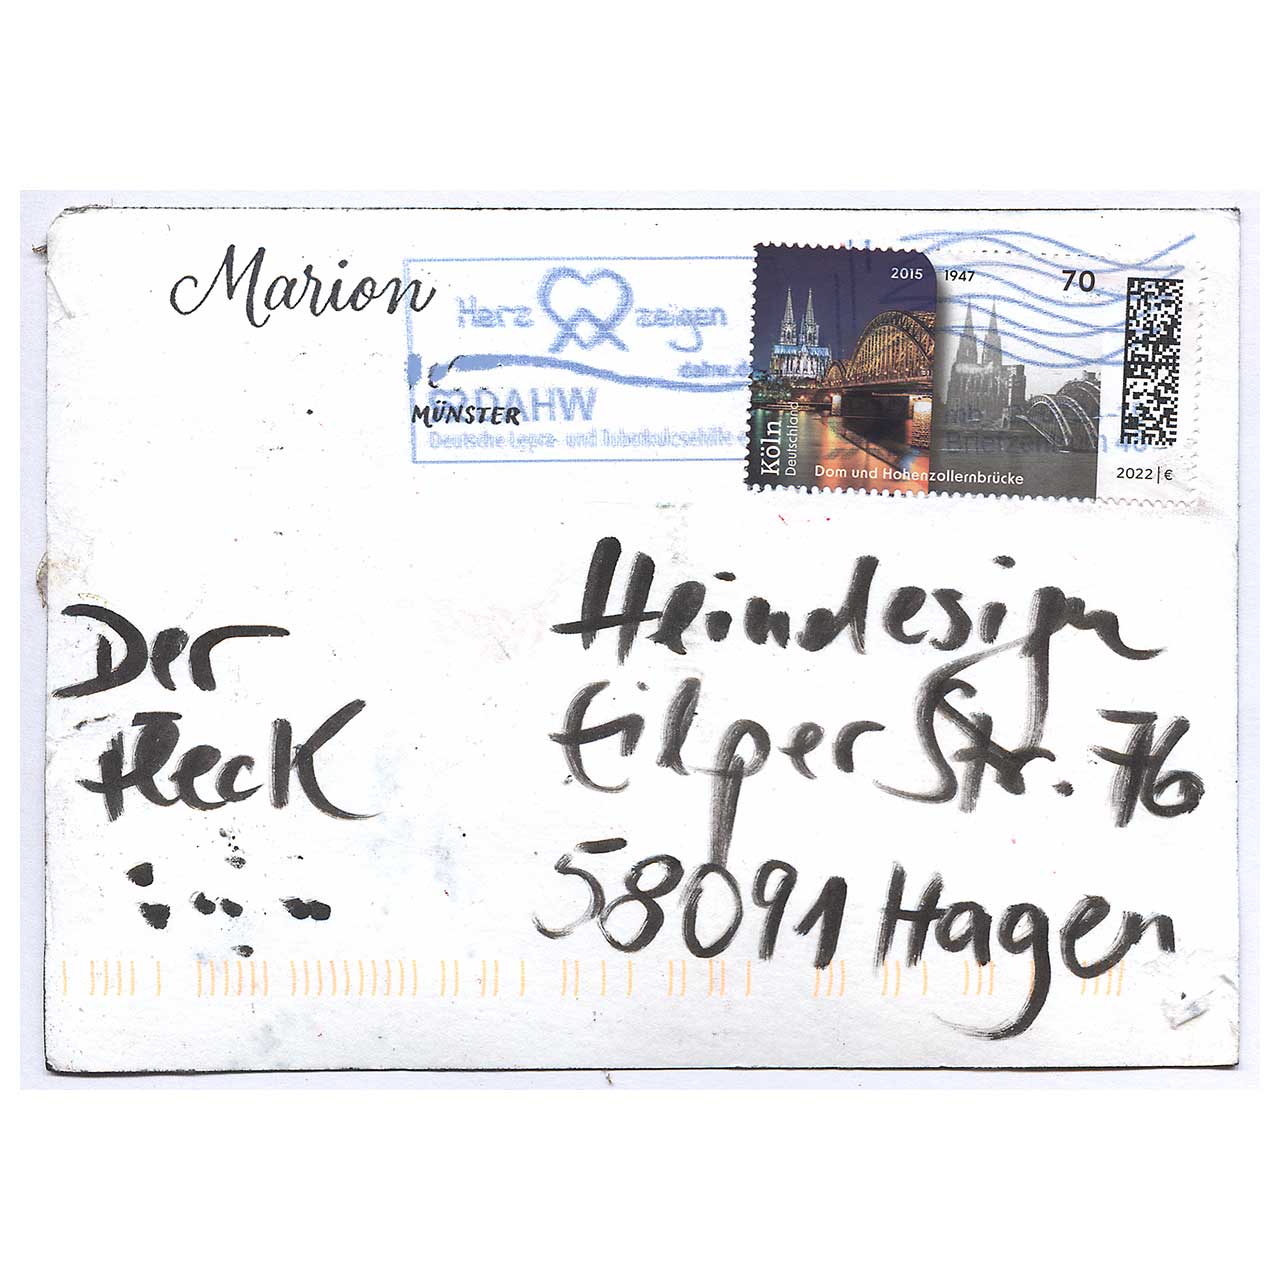 Marion
Herz zeigen
MÜNSTER
DAHW
Deutsche Lepra- und Tuberkulosehilfe
2015
1947
70
Köln
Deutschland
Dom und Hohenzollernbrücke
2022 | €
Briefzentrum 48
Der
Fleck
Heindesign
Eilper Str. 76
58091 Hagen